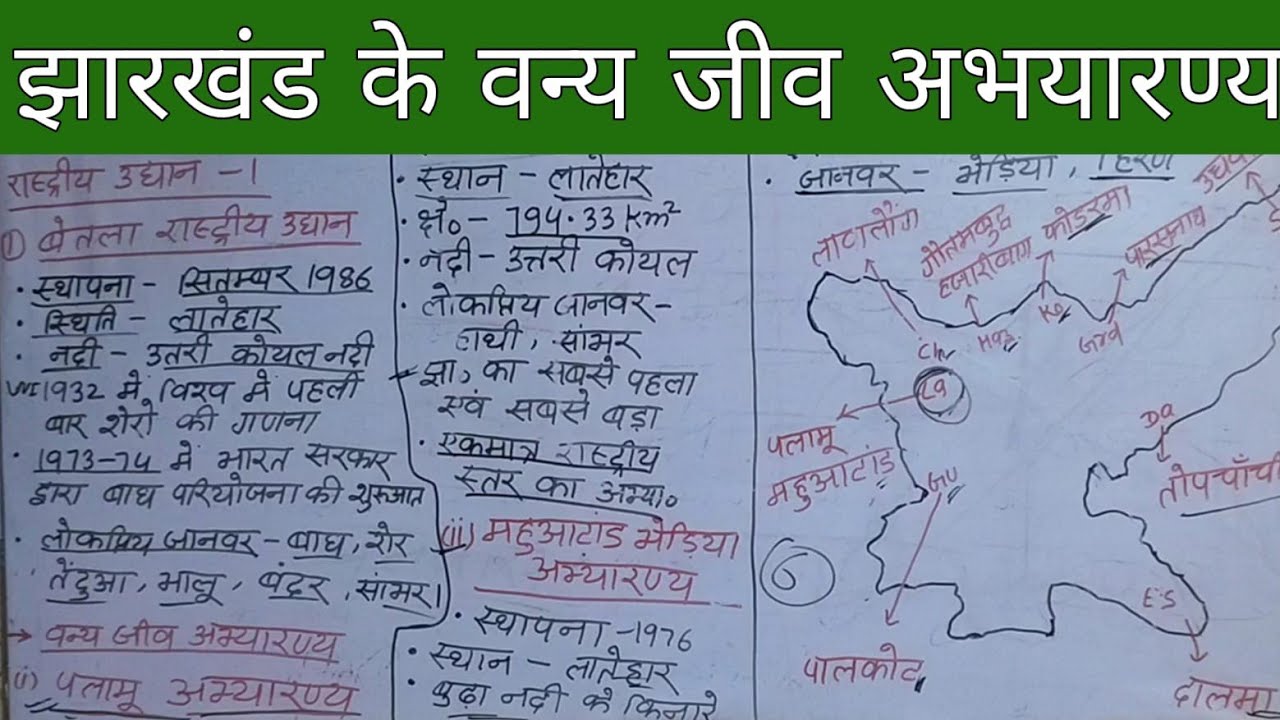 झारखंड के वन्य जीव अभयारण्य
राष्ट्रीय उद्यान -1
① बेतला राष्ट्रीय उद्यान
• स्थापना - सितम्बर 1986
• स्थिति - लातेहार
• नदी - उतरी कोयल नदी
1932 में विश्व में पहली
बार शेरो की गणना
• 1973-74 में भारत सरकार
द्वारा बाघ परियोजना की शुरुआत
• लोकप्रिय जानवर - बाघ, शेर
तेंदुआ, भालू, बंदर, सांभर।
→ वन्य जीव अभ्यारण्य
(i) पलामू अभ्यारण्य
• स्थान - लातेहार
• क्षे॰ - 794.33 Km²
• नदी - उत्तरी कोयल
• लोकप्रिय जानवर -
हाथी, सांभर
झा॰ का सबसे पहला
एवं सबसे बड़ा
• एकमात्र राष्ट्रीय
स्तर का अभ्या॰
(ii) महुआटांड भेड़िया
अभ्यारण्य
• स्थापना - 1976
• स्थान - लातेहार
• बुढ़ा नदी के किनारे
• जानवर - भेड़िया, हिरण
लावालौंग
गौतमबुद्ध
हजारीबाग
कोडरमा
पारसनाथ
Ch
Haz
Ko
La
पलामू
महुआटांड़
GU
Da
तोपचाँची
6
E.S
पालकोट
दालमा